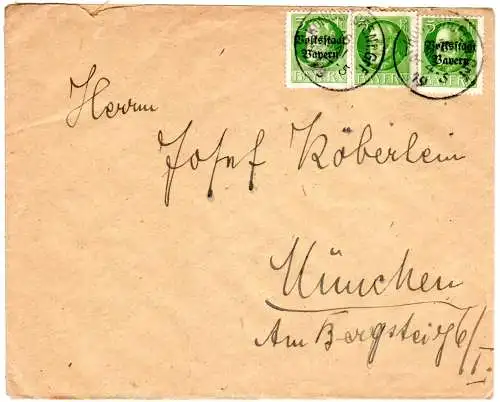 Volksstaat
Bayern
BAYERN
Volksstaat
Bayern
Herrn
Josef Köberlein
München
Am Bergsteig 6/I.